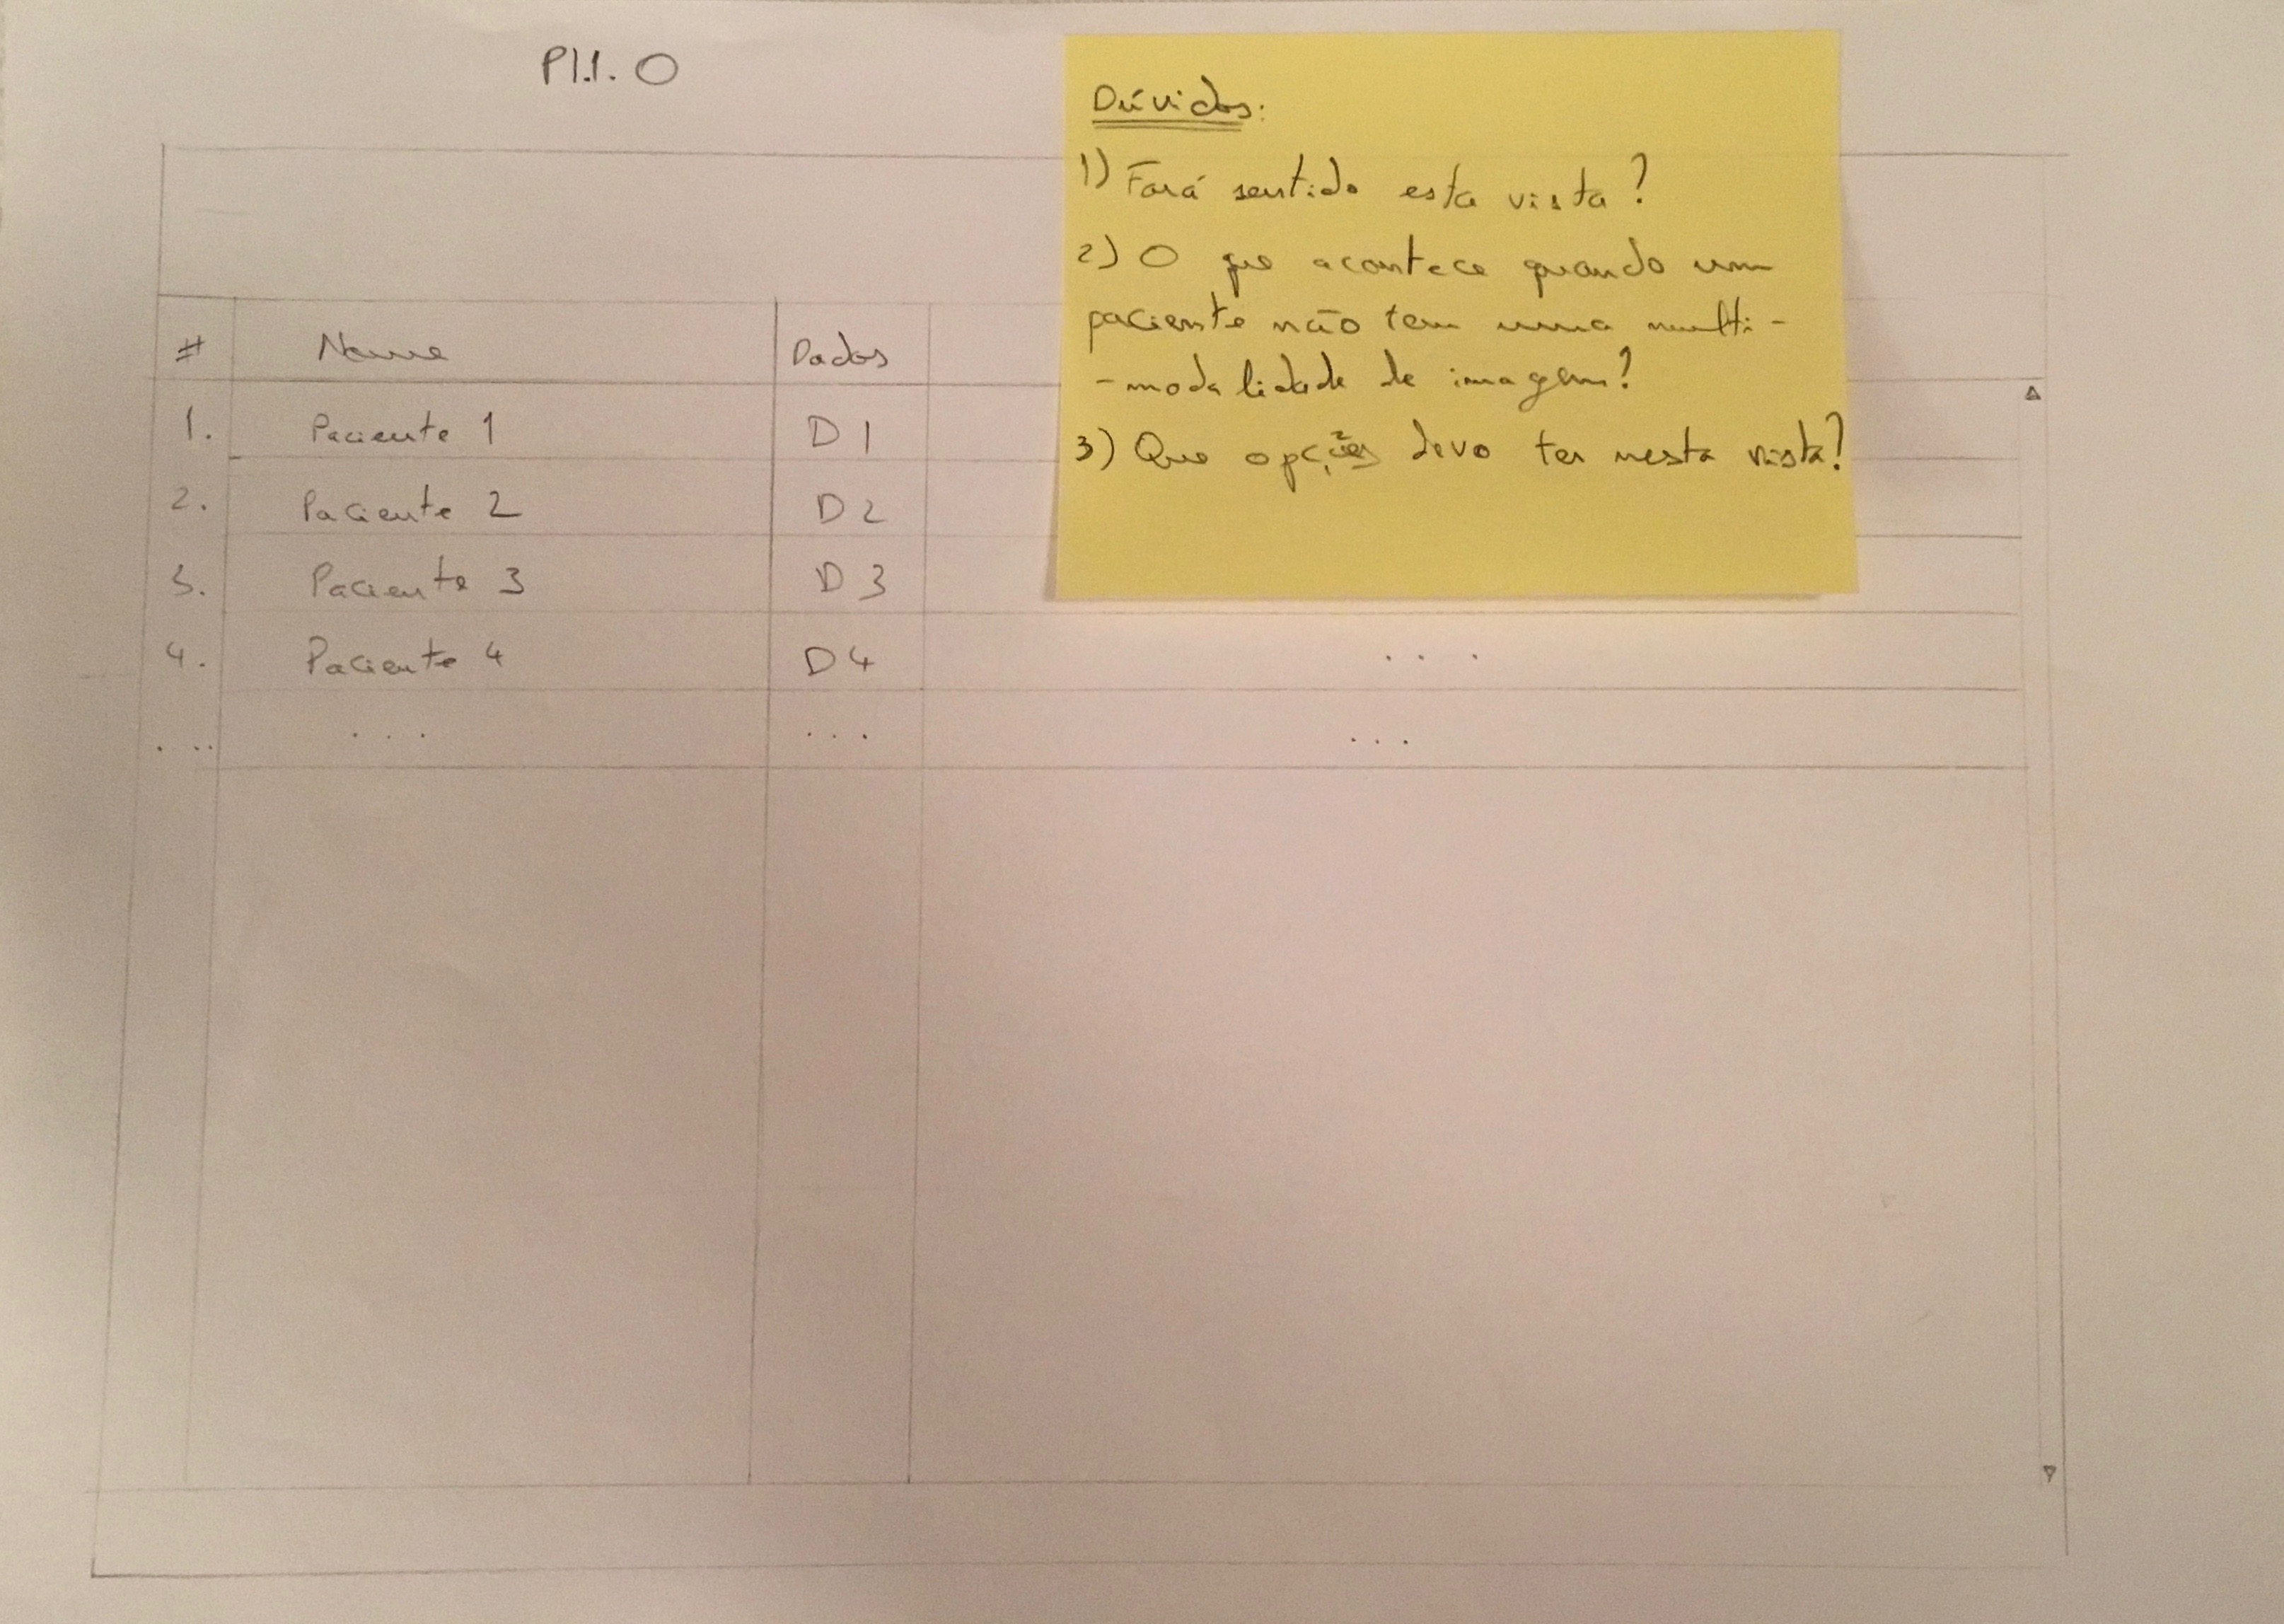 P1.1.0
Dúvidas:
1) Fará sentido esta vista?
2) O que acontece quando um
paciente não tem uma multi-
-modalidade de imagem?
3) Que opções devo ter nesta vista?
# Nome Dados
1. Paciente 1 D1
2. Paciente 2 D2
3. Paciente 3 D3
4. Paciente 4 D4 ...
... ... ... ...